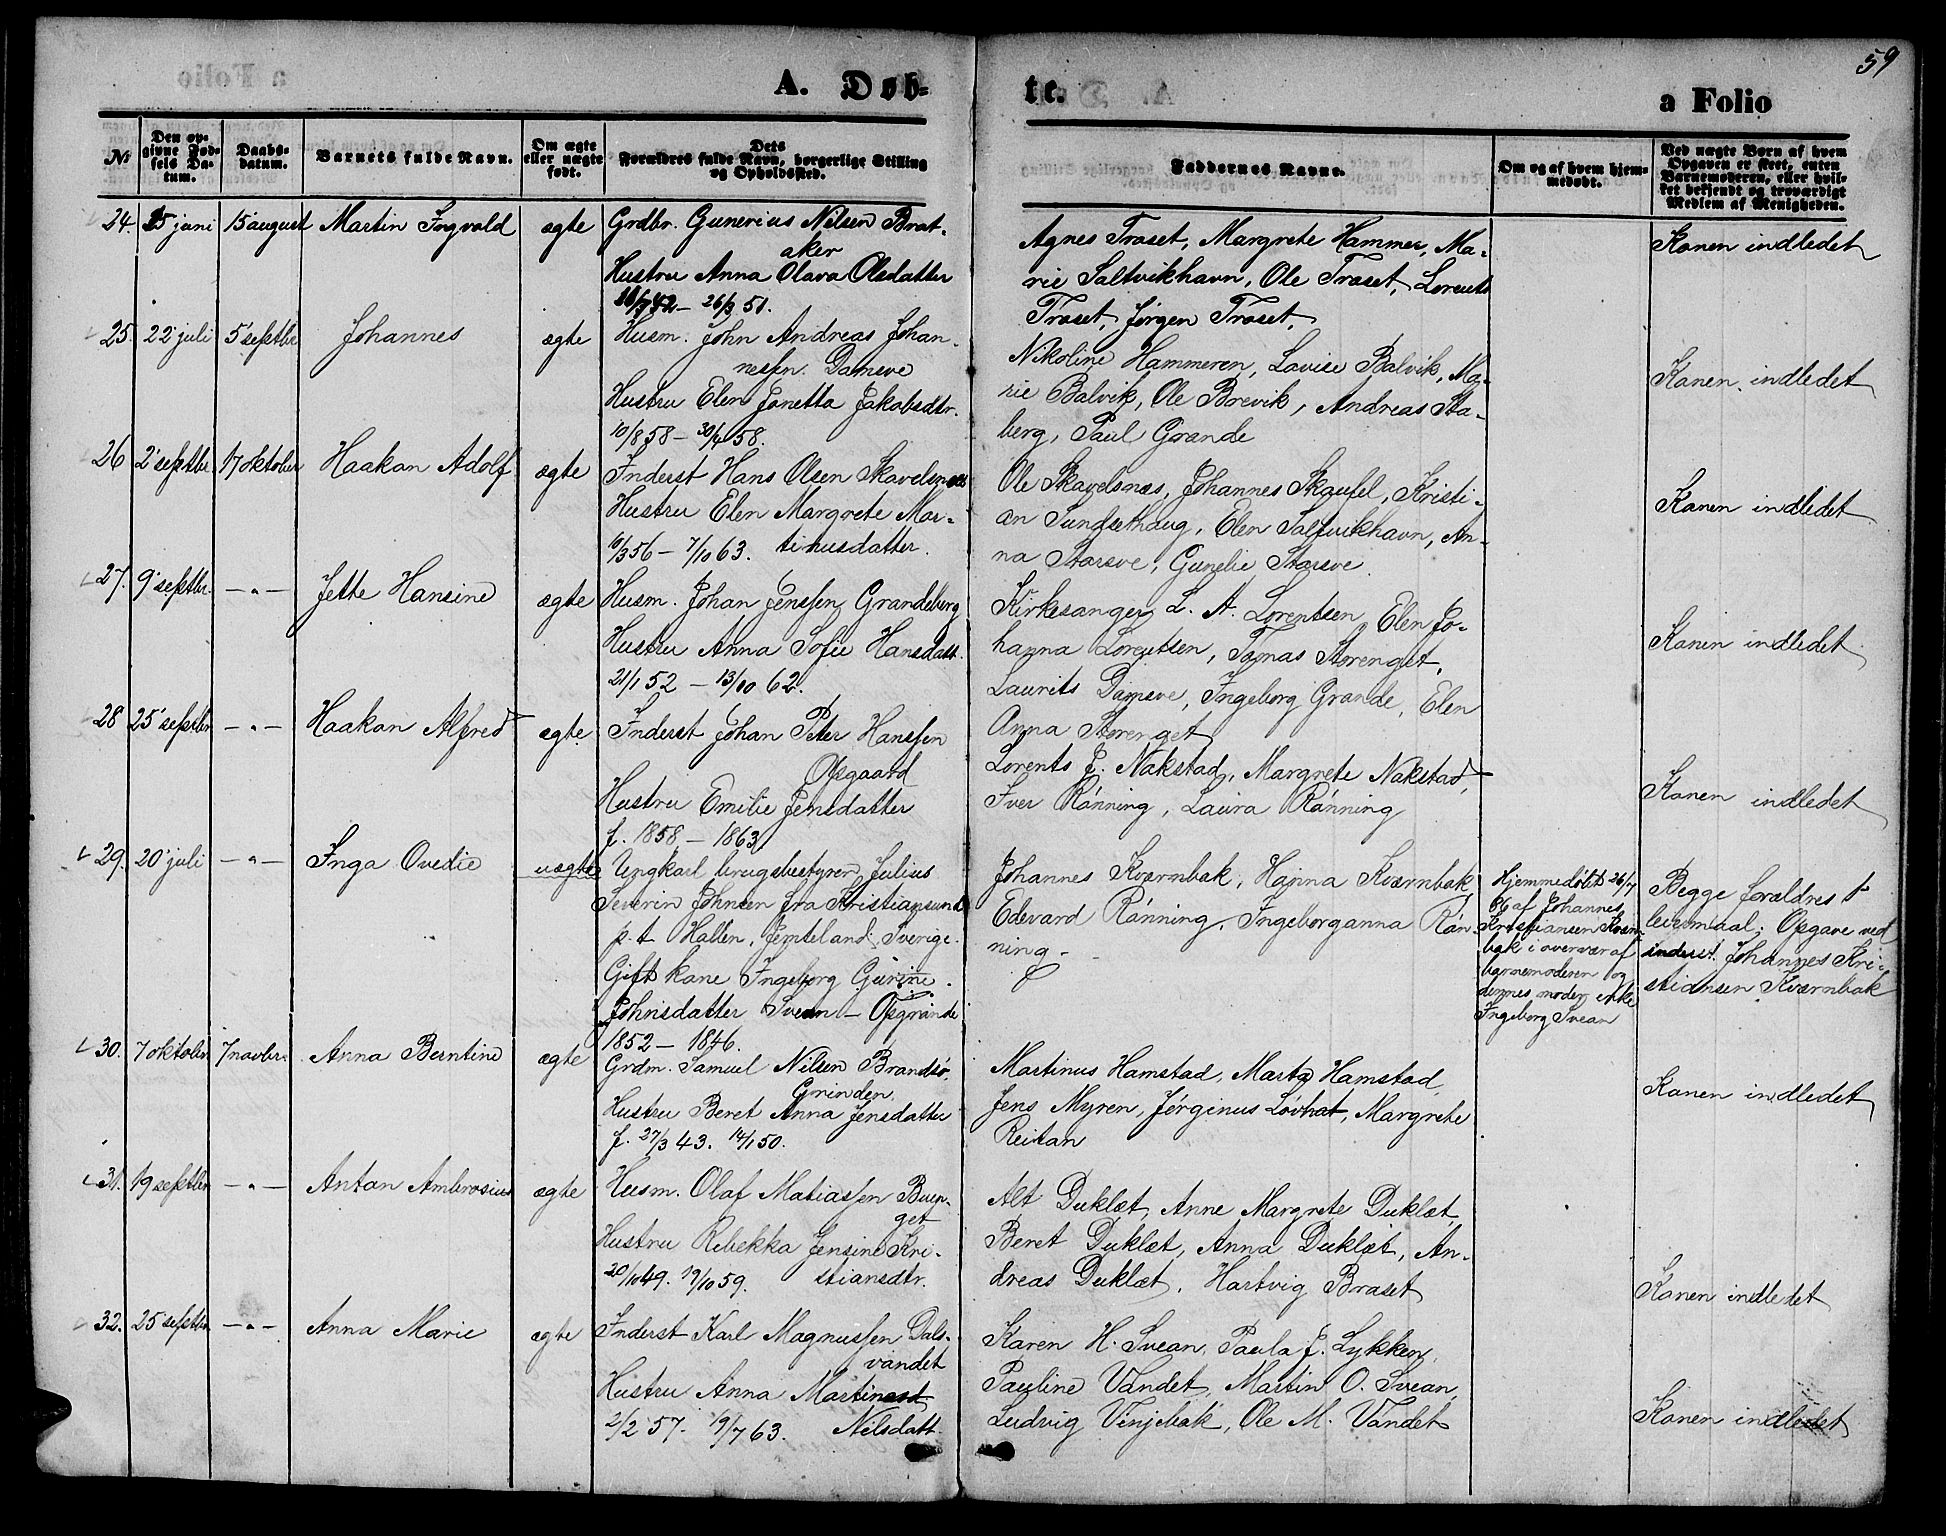 59
A. Døb-
te.
a Folio
No
Den opgivne Fødsels Datum.
Daabsdatum.
Barnets fulde Navn.
Om ægte eller uægte født.
Dets Forældres fulde Navn, borgerlige Stilling og Opholdssted.
Faddernes Navne.
Om og af hvem hjemmedøbt.
Ved uægte Børn af hvem Opgaven er skeet, enten Barnemoderen, eller hvilket bekjendt og troværdigt Medlem af Menigheden.
24. 25 juni 15 august Martin Ingvald ægte Grdbr. Gunerius Nilsen Brat-
aker
Hustru Anna Olava Olsdatter
42 - 26/3 51.
Agnes Trøset, Margrete Hammer, Ma-
rie Saltvikhavn, Ole Trøset, Lorents
Trøset, Jørgen Trøset.
Konen indledet
25. 22 juli 5 septbr Johannes ægte Husm. John Andreas Johan-
nessen Damsve
Hustru Elen Jonetta Jakobsdtr.
10/8 58 - 30/4 58.
Nikoline Hammeren, Lovise Balvik, Ma-
rie Balvik, Ole Brevik, Andreas Sta-
berg, Paul Grande
Konen indledet
26 2 septbr. 17 oktober Haakan Adolf ægte Inderst Hans Olsen Skavelsnæs
Hustru Elen Margrete Mar-
10/3 56 - 7/10 63. tinusdatter.
Ole Skavelsnæs, Johannes Skaufel, Kristi-
an Sundsethaug, Elen Saltvikhavn, An-
na Storsve, Gunelie Storsve
Konen indledet
27. 9 septbr. - " - Jette Hansine ægte Husm. Johan Jenssen Grandeberg
Hustru Anna Sofie Hansdatt.
21/1 52 - 13/10 62.
Kirkesanger L. A. Lorentsen, Elen Jo-
hanna Lorentsen, Tomas Storenget,
Laurits Damsve, Ingeborg Grande, Elen
Anna Storenget
Konen indledet
28 25 septbr - " - Haakan Alfred ægte Inderst Johan Peter Hanssen
Opgaard
Hustru Emilie Jensdatter
f. 1858 - 1863
Lorents J. Nakstad, Margrete Nakstad,
Iver Rønning, Laura Rønning
Konen indledet
29. 20 juli - " - Inga Ovedie uægte Ungkarl brugsbestyrer Julius
Severin Johnsen fra Kristiansund
p.t. Hallen, Jemteland, Sverige.
Gift kone Ingeborg Gurine
Johnsdatter Svean - Opgrande
1852 - 1846.
Johannes Kværnbak, Hanna Kværnbak,
Edevard Rønning, Ingeborganna Røn-
ning -
Hjemmedøbt 26/7
86 af Johannes
Kristiansen Kværn-
bak i overvær af
barnemoderen og
dennes moder enke
Ingeborg Svean
Begge forældres 1ste
leiermaal; Opgave ved
inderst Johannes Kri-
stiansen Kværnbak
30. 7 oktober 7 novbr. Anna Berntine ægte Grdm. Samuel Nilsen Brandsø,
Grinden
Hustru Beret Anna Jensdatter
f. 27/3 43. 14/1 50.
Martinus Hamstad, Marta Hamstad
Jens Myren, Jørginus Løvhat, Margrete
Reitan
Konen indledet
31. 19 septbr - " - Antan Ambrosius ægte Husm. Olaf Matiassen Bur-
get
Hustru Rebekka Jensine Kri-
20/10 49. 19/10 59. stiansdtr.
Alt Duklæt, Anne Margrete Duklæt,
Beret Duklæt, Anna Duklæt, An-
dreas Duklæt, Hartvig Braset
Konen indledet
32. 25 septbr - " - Anna Marie ægte Inderst Karl Magnussen Dals-
vandet
Hustru Anna Martine
2/2 57. 19/7 63. Nilsdatt.
Karen H. Svean, Paula J. Lykken,
Pauline Vandet, Martin O. Svean,
Ludvig Vinjebak, Ole M. Vandet
Konen indledet